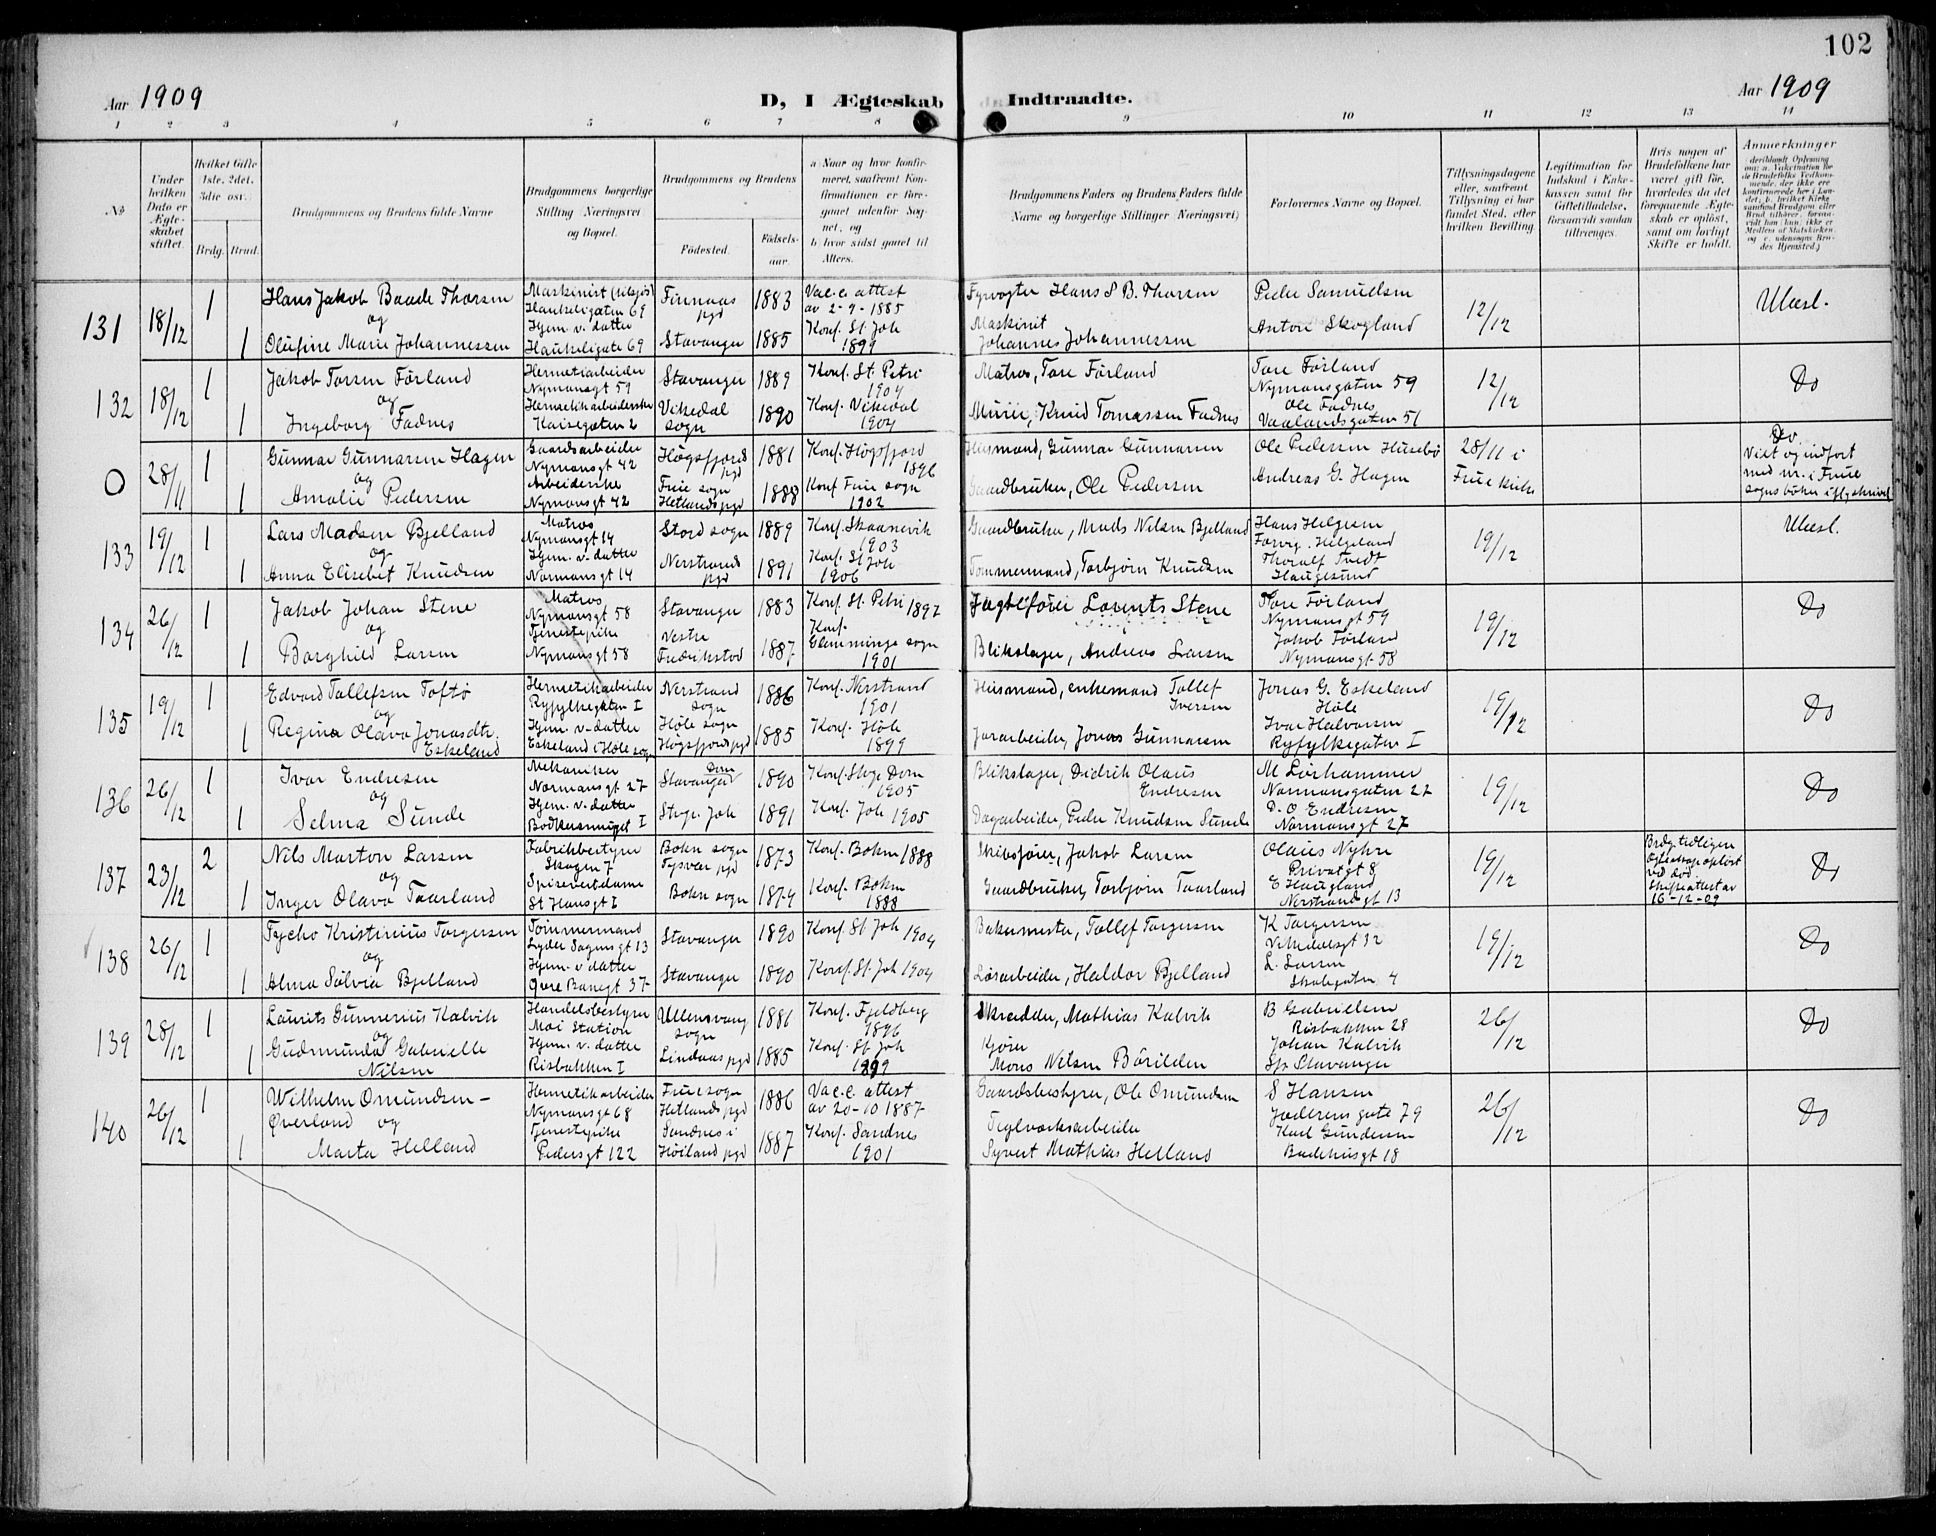 102
Aar 1909
D, I Ægteskab Indtraadte.
Aar 1909
1 2 3 4 5 6 7 8 9 10 11 12 13 14
No
Under hvilken Dato er Ægteskabet stiftet.
Hvilket Gifte 1ste, 2det, 3die osv.
Brdg. Brud.
Brudgommens og Brudens fulde Navne
Brudgommens borgerlige Stilling Næringsvei og Bopæl.
Brudgommens og Brudens
Fødested.
Fødselsaar.
a Naar og hvor konfirmeret, saafremt Konfirmationen er foregaaet udenfor Sognet, og
b hvor sidst gaaet til Alters.
Brudgommens Faders og Brudens Faders fulde Navne og borgerlige Stillinger Næringsvei)
Forlovernes Navne og Bopæl.
Tillysningsdagene eller, saafremt Tillysning ei har fundet Sted, efter hvilken Bevilling.
Legitimation for Indskud i Enkekassen samt for Giftetilladelse, forsaavidt saadan tiltrænges.
Hvis nogen af Brudefolkene har været gift før, hvorledes da det foregaaende Ægteskab er opløst, samt om lovligt Skifte er holdt.
Anmerkninger
131
18/12
1
Hans Jakob Baade Thorsen
og
1
Olufine Marie Johannessen
Maskinist (tilsjøs)
Haukeligaten 69
Hjem. v. datter
Haukeligate 69
Finnaas pgd
Stavanger
1883
1885
Vac.c. attest
av 2-9-1885
Konf. St. Joh
1899
Fyrvogter Hans S B. Thorsen
Maskinist
Johannes Johannessen
Peder Samuelsen
Anton Skogland
12/12
Ulæsl.
132
18/12
1
Jakob Torsen Førland
og
1
Ingeborg Fadnes
Hermetikarbeider
Nymansgt 59
Hermetikarbeiderske
Kaisegaten 2
Stavanger
Vikedal sogn
1889
1890
Konf. St. Petri
1904
Konf. Vikedal
1904
Matros, Tore Førland
Murer, Knud Tomassen Fadnes
Tore Førland
Nymansgaten 59
Ole Fadnes
Vaalandsgaten 51
12/12
Do
0
28/11
1
Gunnar Gunnarsen Hagen
og
1
Amalie Pedersen
Gaardsarbeider
Nymansgt 42
Arbeiderske
Nymansgt 42
Høgsfjord pgd
Frue sogn
Hetlands pgd
1881
1888
Konf. Høgsfjord
1896
Konf Frue sogn
1902
Husmand, Gunnar Gunnarsen
Gaardbruker, Ole Pedersen
Ole Pedersen Husebø
Andreas G. Hagen
28/11 i
Frue kirke
Do
Viet og indført
med nr. i Frue
sogns bøker
133
19/12
1
Lars Madsen Bjelland
og
1
Anna Elisebet Knudsen
Matros
Nymansgt 14
Hjem. v. datter
Normansgt 14
Stord sogn
Nerstrands pgd
1889
1891
Konf. Skaanevik
1903
Konf. St Joh
1906
Gaardbruker, Mads Nilsen Bjelland
Tømmermand, Torbjørn Knudsen
Hans Helgesen
Førvig. Helgeland
Thoralf Tvedt
Haugesund
19/12
Ulæsl.
134
26/12
1
Jakob Johan Stene
og
1
Borghild Larsen
Matros
Nymansgt 58
Tjenestepike
Nymansgt 58
Stavanger
Vestre
Fredrikstad
1883
1887
Konf. St. Petri 1897
Konf.
Glemminge sogn
1901
Jagtefører Lorents Stene
Blikslager, Andreas Larsen
Tore Førland
Nymansgt 59
Jakob Førland
Nymansgt 58
19/12
Do
135
19/12
1
Edvard Tollefsen Toftø
og
1
Regina Olava Jonasdtr.
Eskeland
Hermetikarbeider
Ryfylkegaten I
Hjem. v. datter
Eskeland i Høle sogn
Nerstrand sogn
Høle sogn
Høgsfjords pgd
1886
1885
Konf. Nerstrand
1901
Konf. Høle
1899
Husmand, enkemand Tollef
Iversen
Jorarbeider, Jonas Gunnarsen
Jonas G. Eskeland
Høle
Ivar Halvorsen
Ryfylkegaten I
19/12
Do
136
26/12
1
Ivar Endresen
og
1
Selma Sunde
Mekaniker
Normansgt 27
Hjem. v. datter
Bødkersmuget I
Stavanger Dom
Stvgr. Joh
1890
1891
Konf. Stvgr Dom
1905
Konf. Joh 1905
Blikslager, Didrik Olaus
Endresen
Dagarbeider, Peder Knudsen Sunde
M Lørhammer
Normansgaten 27
D. O Endresen
Normansgt 27
19/12
Do
137
23/12
2
Nils Morton Larsen
og
1
Inger Olava Taarland
Fabrikbestyrer
Skagen 7
Spisevertdame
St Hansgt I
Bokn sogn
Tysvær pgd
Bokn sogn
1873
1874
Konf. Bokn 1888
Konf. Bokn
1888
Skibsfører, Jakob Larsen
Gaardbruker, Torbjørn Taarland
Olaus Nyhre
Privatgt 8
E Haugland
Nerstrandgt 13
19/12
Brdg. tidligere
egteskap opløst
ved død.
Skifteattest av
16-12-09
Do
138
26/12
1
Tycho Kristinius Torgersen
og
1
Alma Solvia Bjelland
Tømmermand
Lyder Sagens gt 13
Hjem. v datter
Øvre Banegt 37
Stavanger
Stavanger
1890
1890
Konf St Joh 1904
Konf. St. Joh 1904
Bakermester, Tollef Torgersen
Løsarbeider, Haldor Bjelland
K Torgersen
Vikedalsgt 32
L. Larsen
Skolegaten 4
19/12
Do
139
28/12
1
Laurits Gunnerius Kalvik
og
1
Gudmunda Gabrielle
Nilsen
Handelsbestyrer
Moi Station
Hjem. v. datter
Risbakken I
Ullensvang sogn
Lindaas pgd
1881
1885
Konf. Fjeldberg
1896
Konf. St Joh
1899
Skredder, Mathias Kalvik
Kjører
Mons Nilsen Børilden
B Gabrielsen
Risbakken 28
Johan Kalvik
St. Stavanger
26/12
Do
140
26/12
1
Wilhelm Omundsen-
Øverland og
1
Marta Helland
Hermetikarbeider
Nymansgt 68
Tjenestepike
Pedersgt 122
Frue sogn
Hetlands pgd
Sandnes i
Høiland pgd
1886
1887
Vac.c. attest
av 20-10 1887
Konf. Sandnes
1901
Gaardsbestyrer, Ole Omundsen
Teglverksarbeider
Syvert Mathias Helland
S Hansen
Jæderens gate 79
Karl Gundersen
Badehusgt 18
26/12
Do